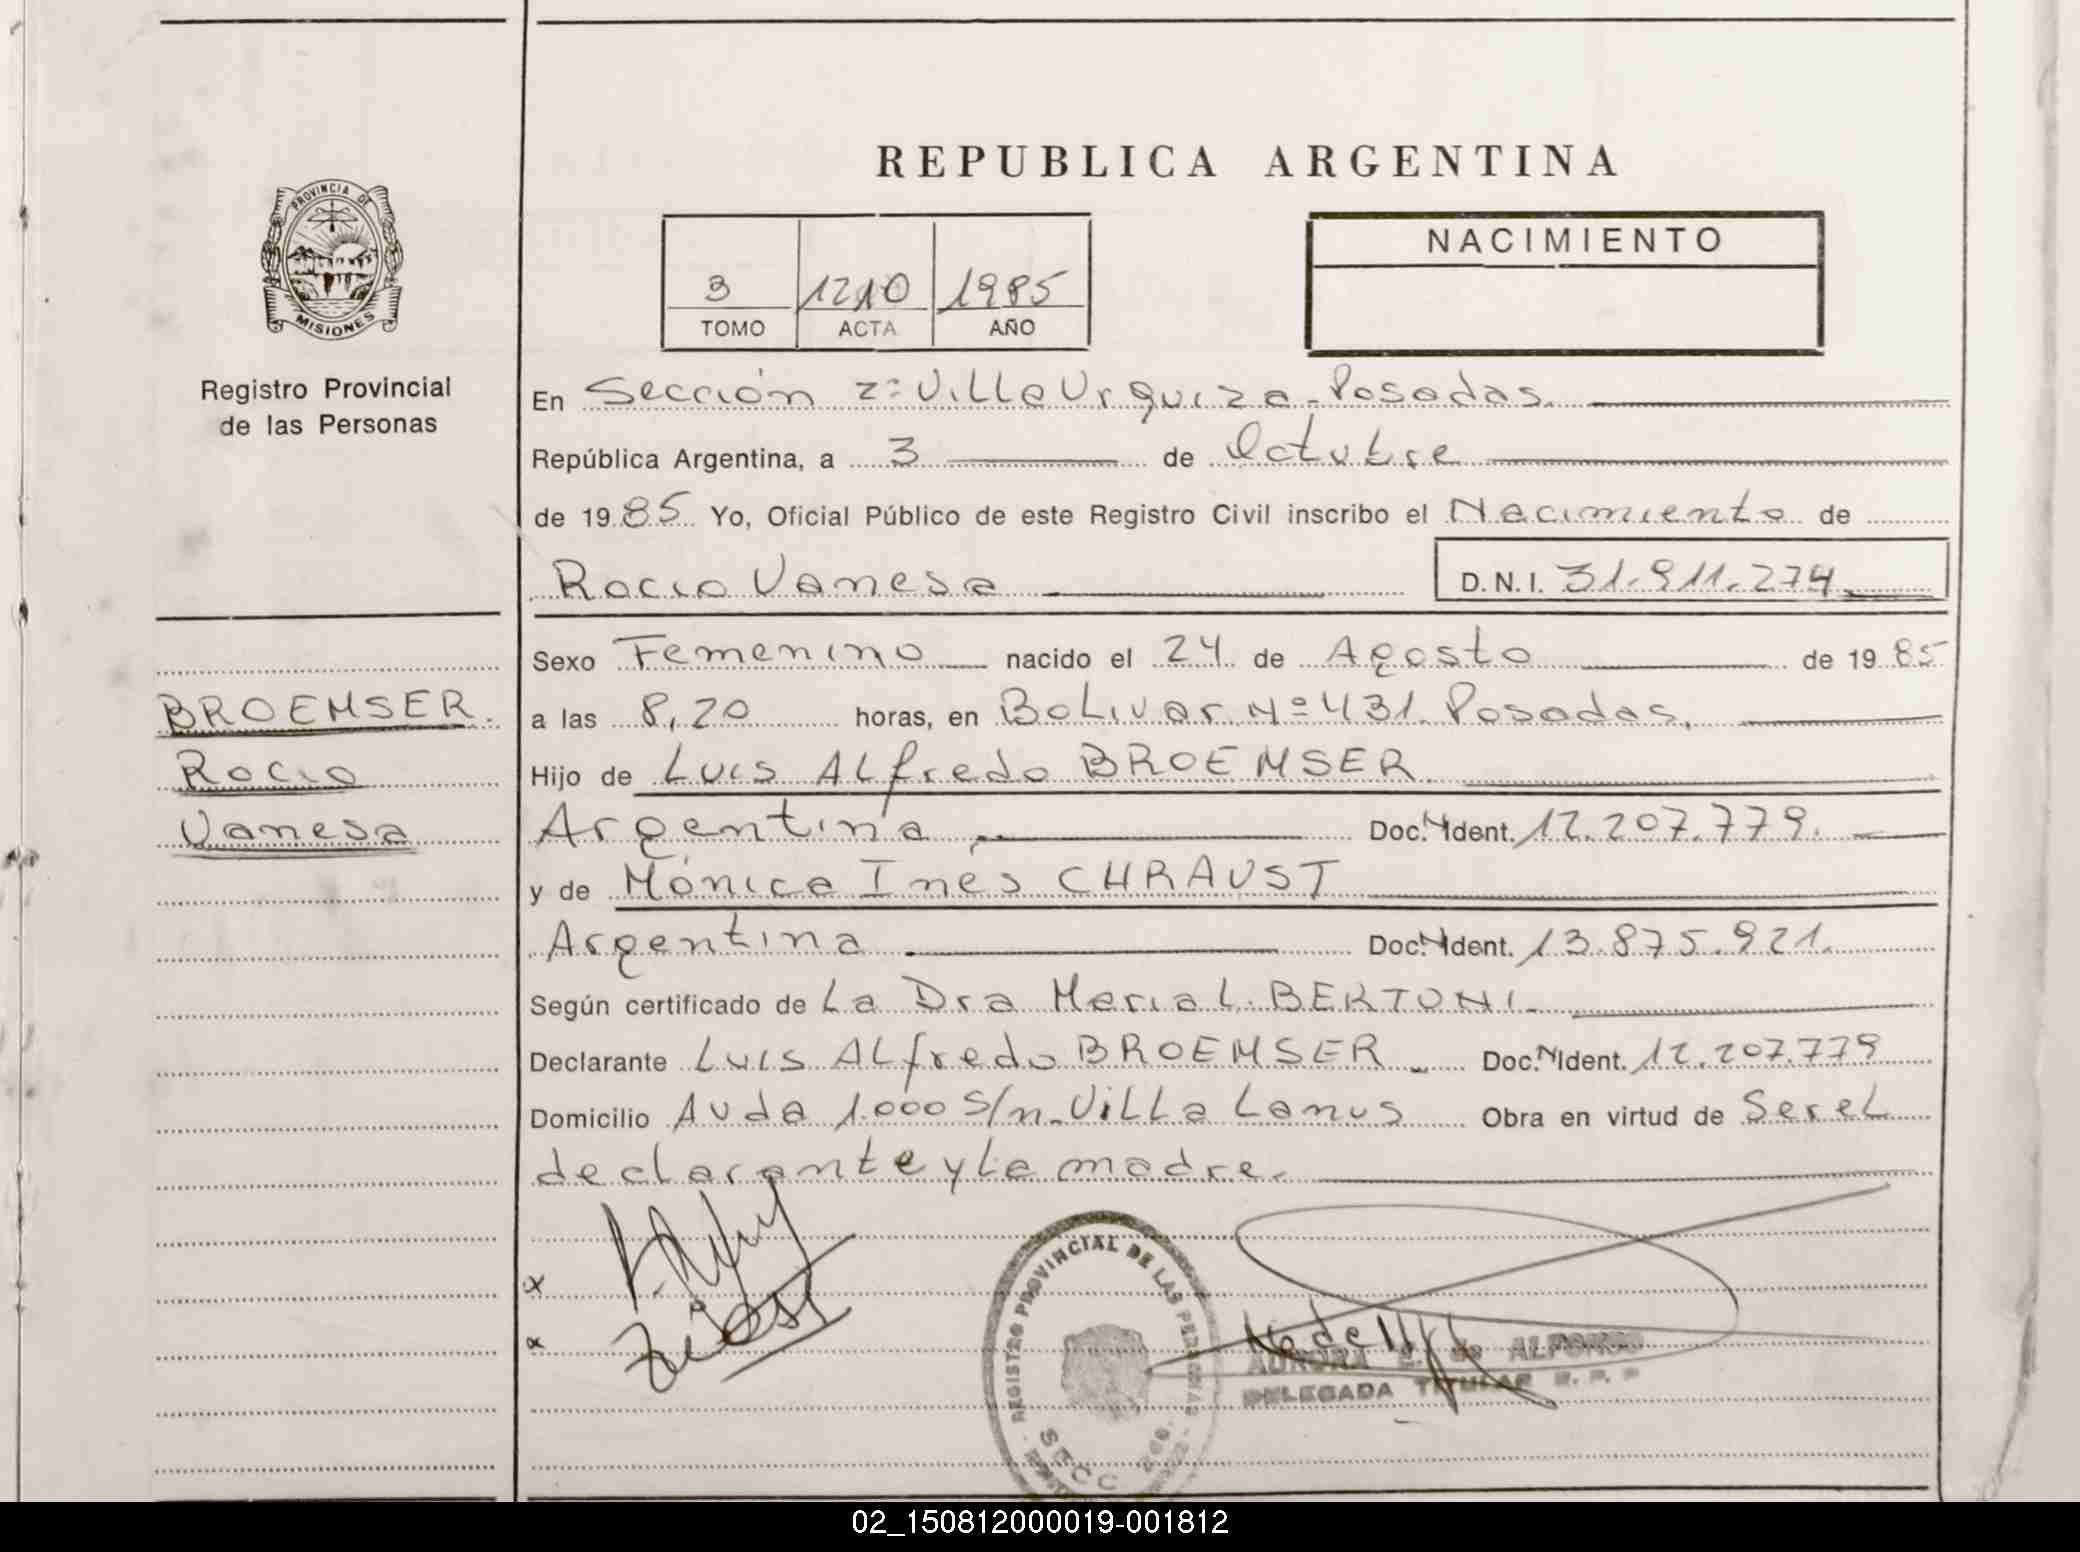 REPUBLICA ARGENTINA
PROVINCIA DE
MISIONES
Registro Provincial
de las Personas
3 1210 1985
TOMO ACTA AÑO
NACIMIENTO
En Sección 2ª Villa Urquiza - Posadas.
República Argentina, a 3 de Octubre
de 1985 Yo, Oficial Público de este Registro Civil inscribo el Nacimiento de
Rocio Vanesa D.N.I. 31.911.274
BROEMSER.
Rocio
Vanesa
Sexo Femenino nacido el 24 de Agosto de 1985
a las 8,20 horas, en Bolivar Nº 431. Posadas.
Hijo de Luis Alfredo BROEMSER.
Argentina Doc. N Ident. 12.207.779.
y de Mónica Inés CHRAUST
Argentina Doc. N Ident. 13.875.921.
Según certificado de La Dra Maria L. BERTONI.
Declarante Luis Alfredo BROEMSER Doc. N Ident. 12.207.779
Domicilio Avda 1.000 S/n. Villa Lanus Obra en virtud de Ser el
declarante y la madre.
REGISTRO PROVINCIAL DE LAS PERSONAS
SECC
AURORA E. de ALFONSO
DELEGADA TITULAR R. P. P
02_150812000019-001812